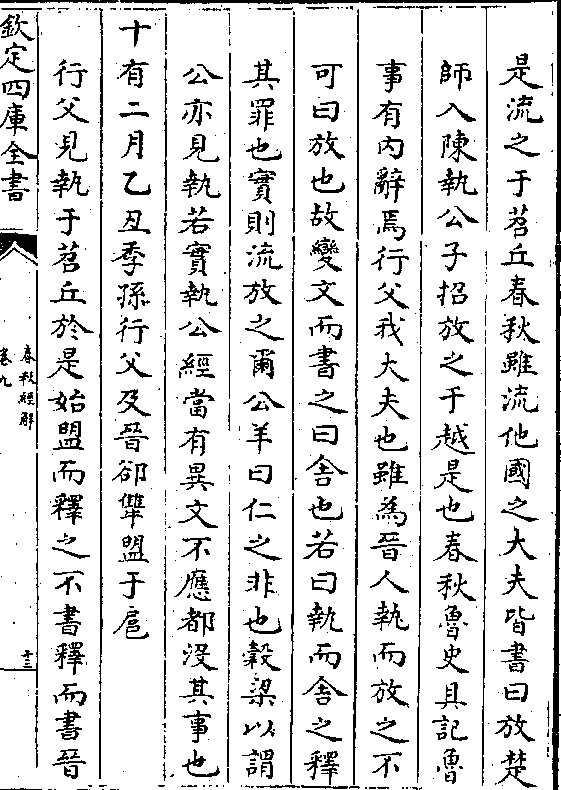 是流之于苕丘春秋雖流他國之大夫皆書曰放楚
師入陳執公子招放之于越是也春秋魯史具記魯
事有內辭焉行父我大夫也雖為晉人執而放之不
可曰放也故變文而書之曰舍也若曰執而舍之釋
其罪也實則流放之爾公羊曰仁之非也穀梁以謂
公亦見執若實執公經當有異文不應都沒其事也
十有二月乙丑季孫行父及晉郤犫盟于扈
行父見執于苕丘於是始盟而釋之不書釋而書晉
欽定四庫全書
春秋經解
卷九
十三